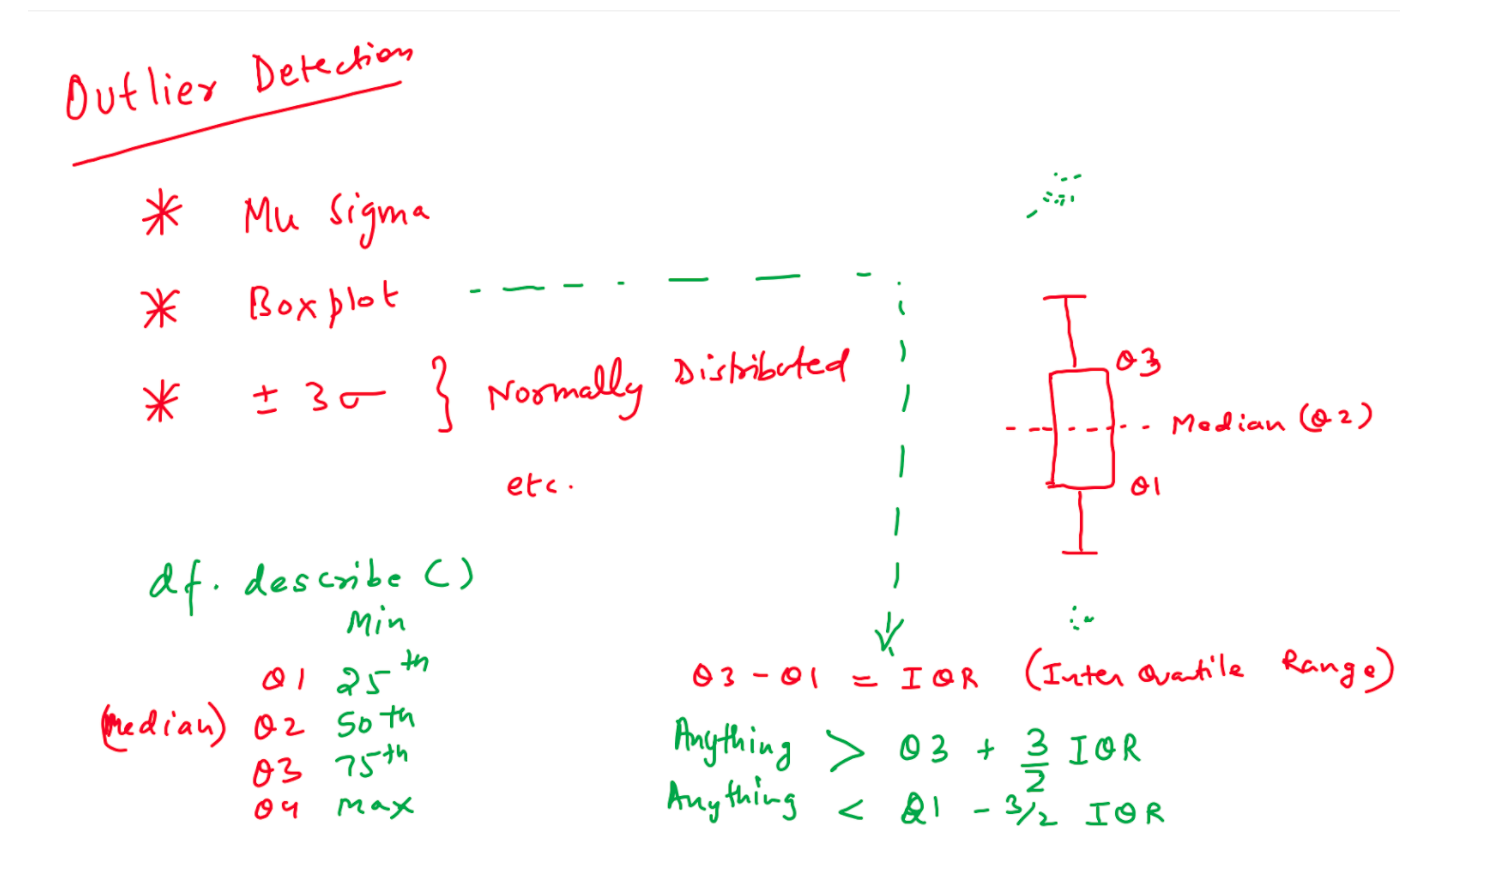 Outlier Detection
* Mu Sigma
* Boxplot
* ± 3σ } Normally Distributed
etc.
Q3
Median (Q2)
Q1
df. describe ()
Min
Q1 25th
(Median) Q2 50th
Q3 75th
Q4 max
Q3 - Q1 = IQR (Inter Quatile Range)
Anything > Q3 + 3/2 IQR
Anything < Q1 - 3/2 IQR